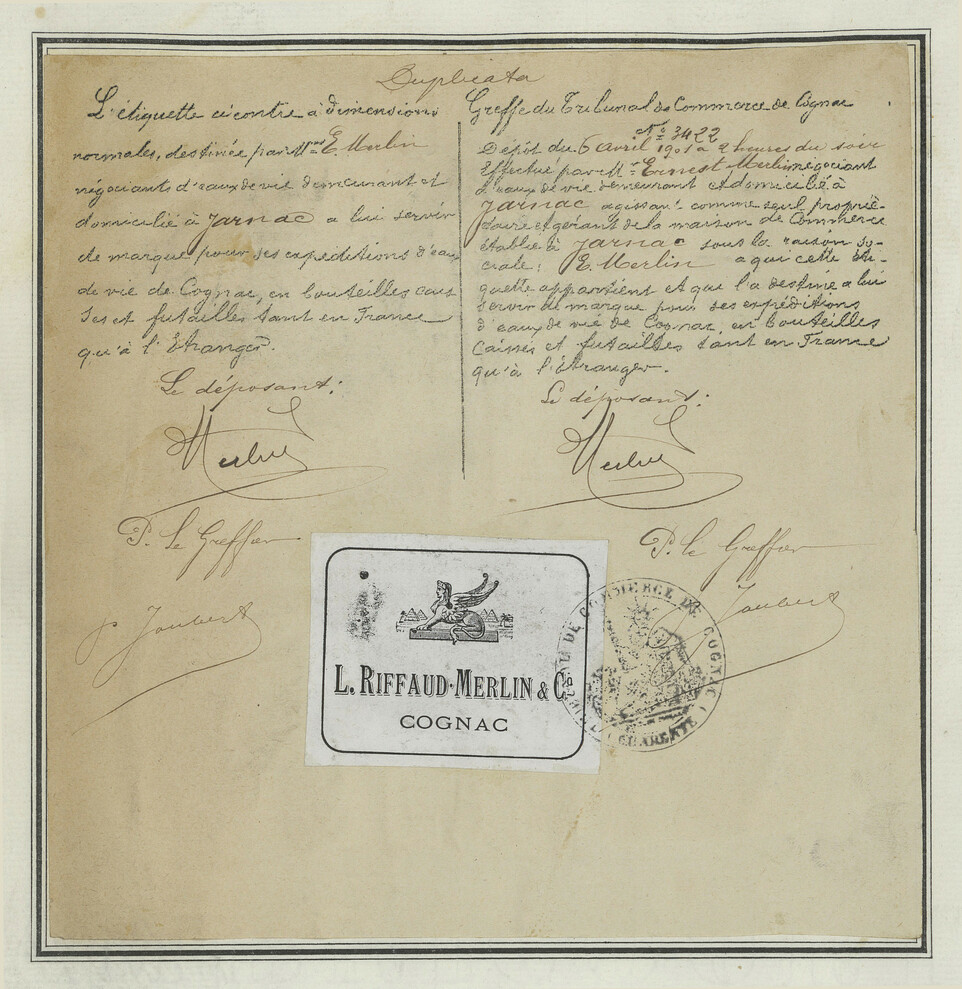 Duplicata
L'étiquette ci contre à dimensions
normales, destinée par Mr E. Merlin
négociants d'eaux de vie demeurant et
domicilié à Jarnac a lui servir
de marque pour ses expéditions d'eau
de vie de Cognac, en bouteilles cais
ses et futailles tant en France
qu'à l'Etranger.
Le déposant:
Merlin
P. Le Greffier
P Joubert
Greffe du Tribunal de Commerce de Cognac
No 3422
Dépôt du 6 Avril 1901 à 2 heures du soir
Effectué par Mr Ernest Merlin négociant
d'eaux de vie demeurant et domicilié à
Jarnac agissant comme seul proprié-
taire et gérant de la maison de Commerce
établie à Jarnac sous la raison so-
ciale: E. Merlin a qui cette éti-
quette appartient et que l'a destiné a lui
servir de marque pour ses expéditions
d'eaux de vie de Cognac, en bouteilles
Caisses et futailles tant en France
qu'à l'Etranger.
Le déposant:
Merlin
P. Le Greffier
Joubert
L. RIFFAUD-MERLIN & Co
COGNAC
TRIBUNAL DE COMMERCE DE COGNAC
CHARENTE